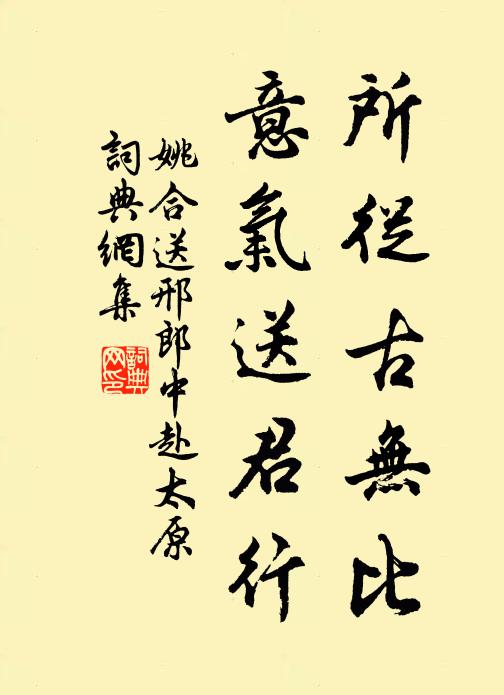 所從古無比
意氣送君行
姚合送邢郎中赴太原
詞典網集
詞典网印